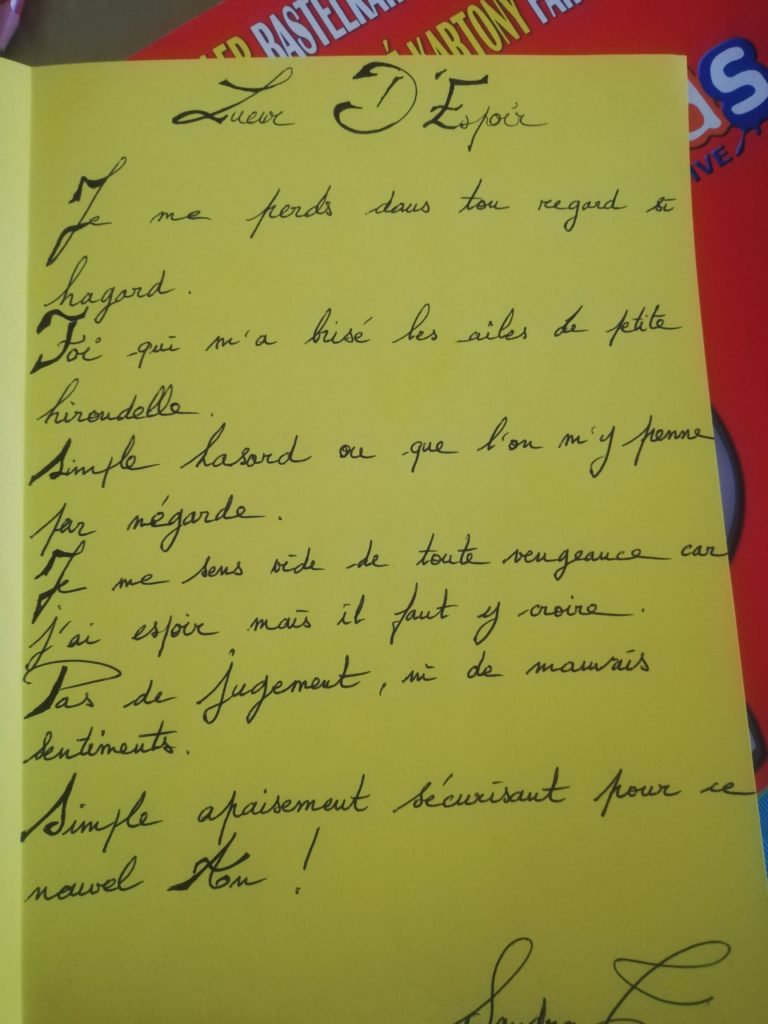 BASTELKAR
KARTONY
Lueur D'Espoir
Je me perds dans ton regard si
hagard.
Toi qui m'a brisé les ailes de petite
hirondelle.
Simple hasard ou que l'on m'y penne
par mégarde.
Je me sens vide de toute vengeance car
j'ai espoir mais il faut y croire.
Pas de jugement, ni de mauvais
sentiments.
Simple apaisement sécurisant pour ce
nouvel An !
Sandra